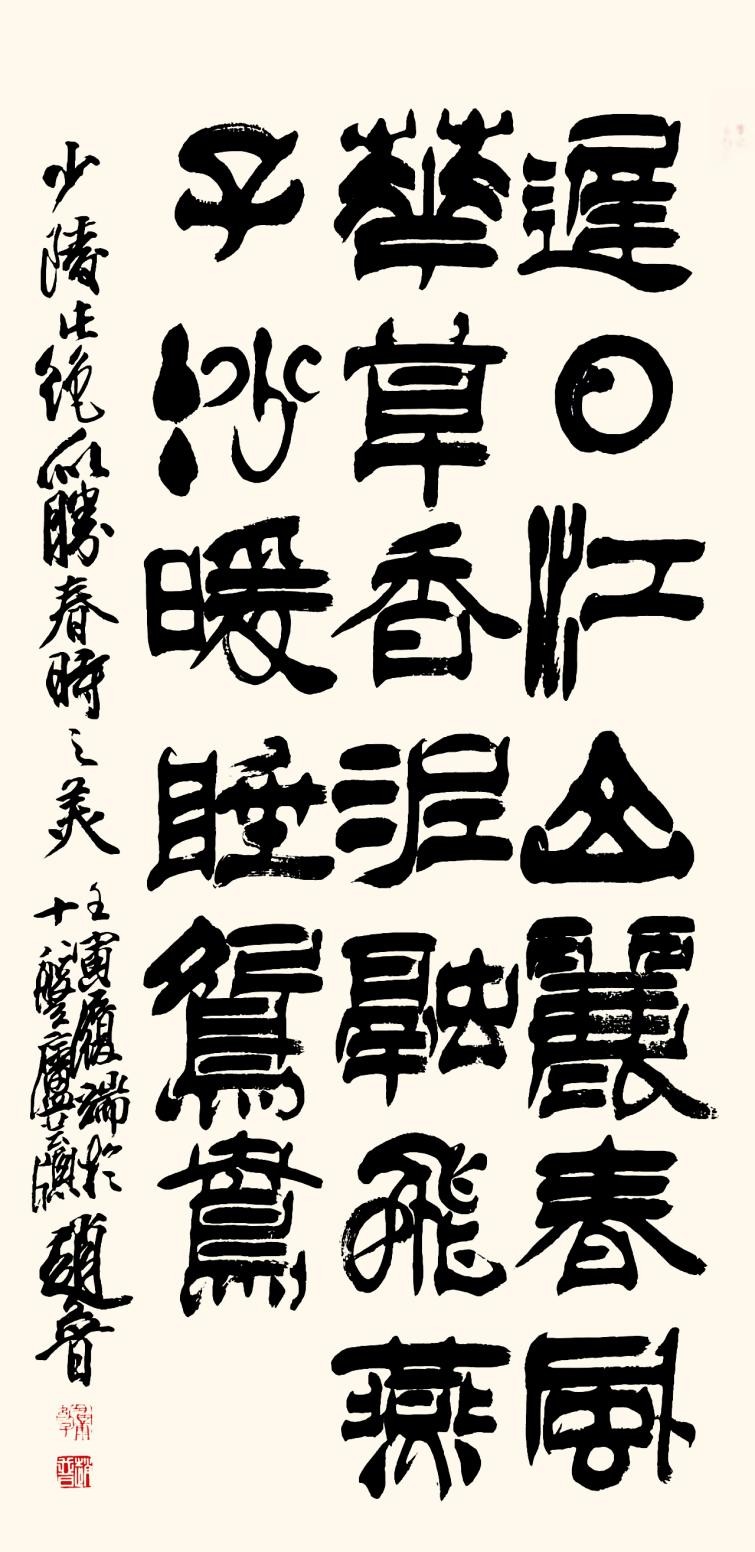 遲日江山麗春風
華草香泥融飛燕
子沙暖睡鴛鴦
少陵此絶 勝春時之美
壬寅履端於
十 盤
趙普